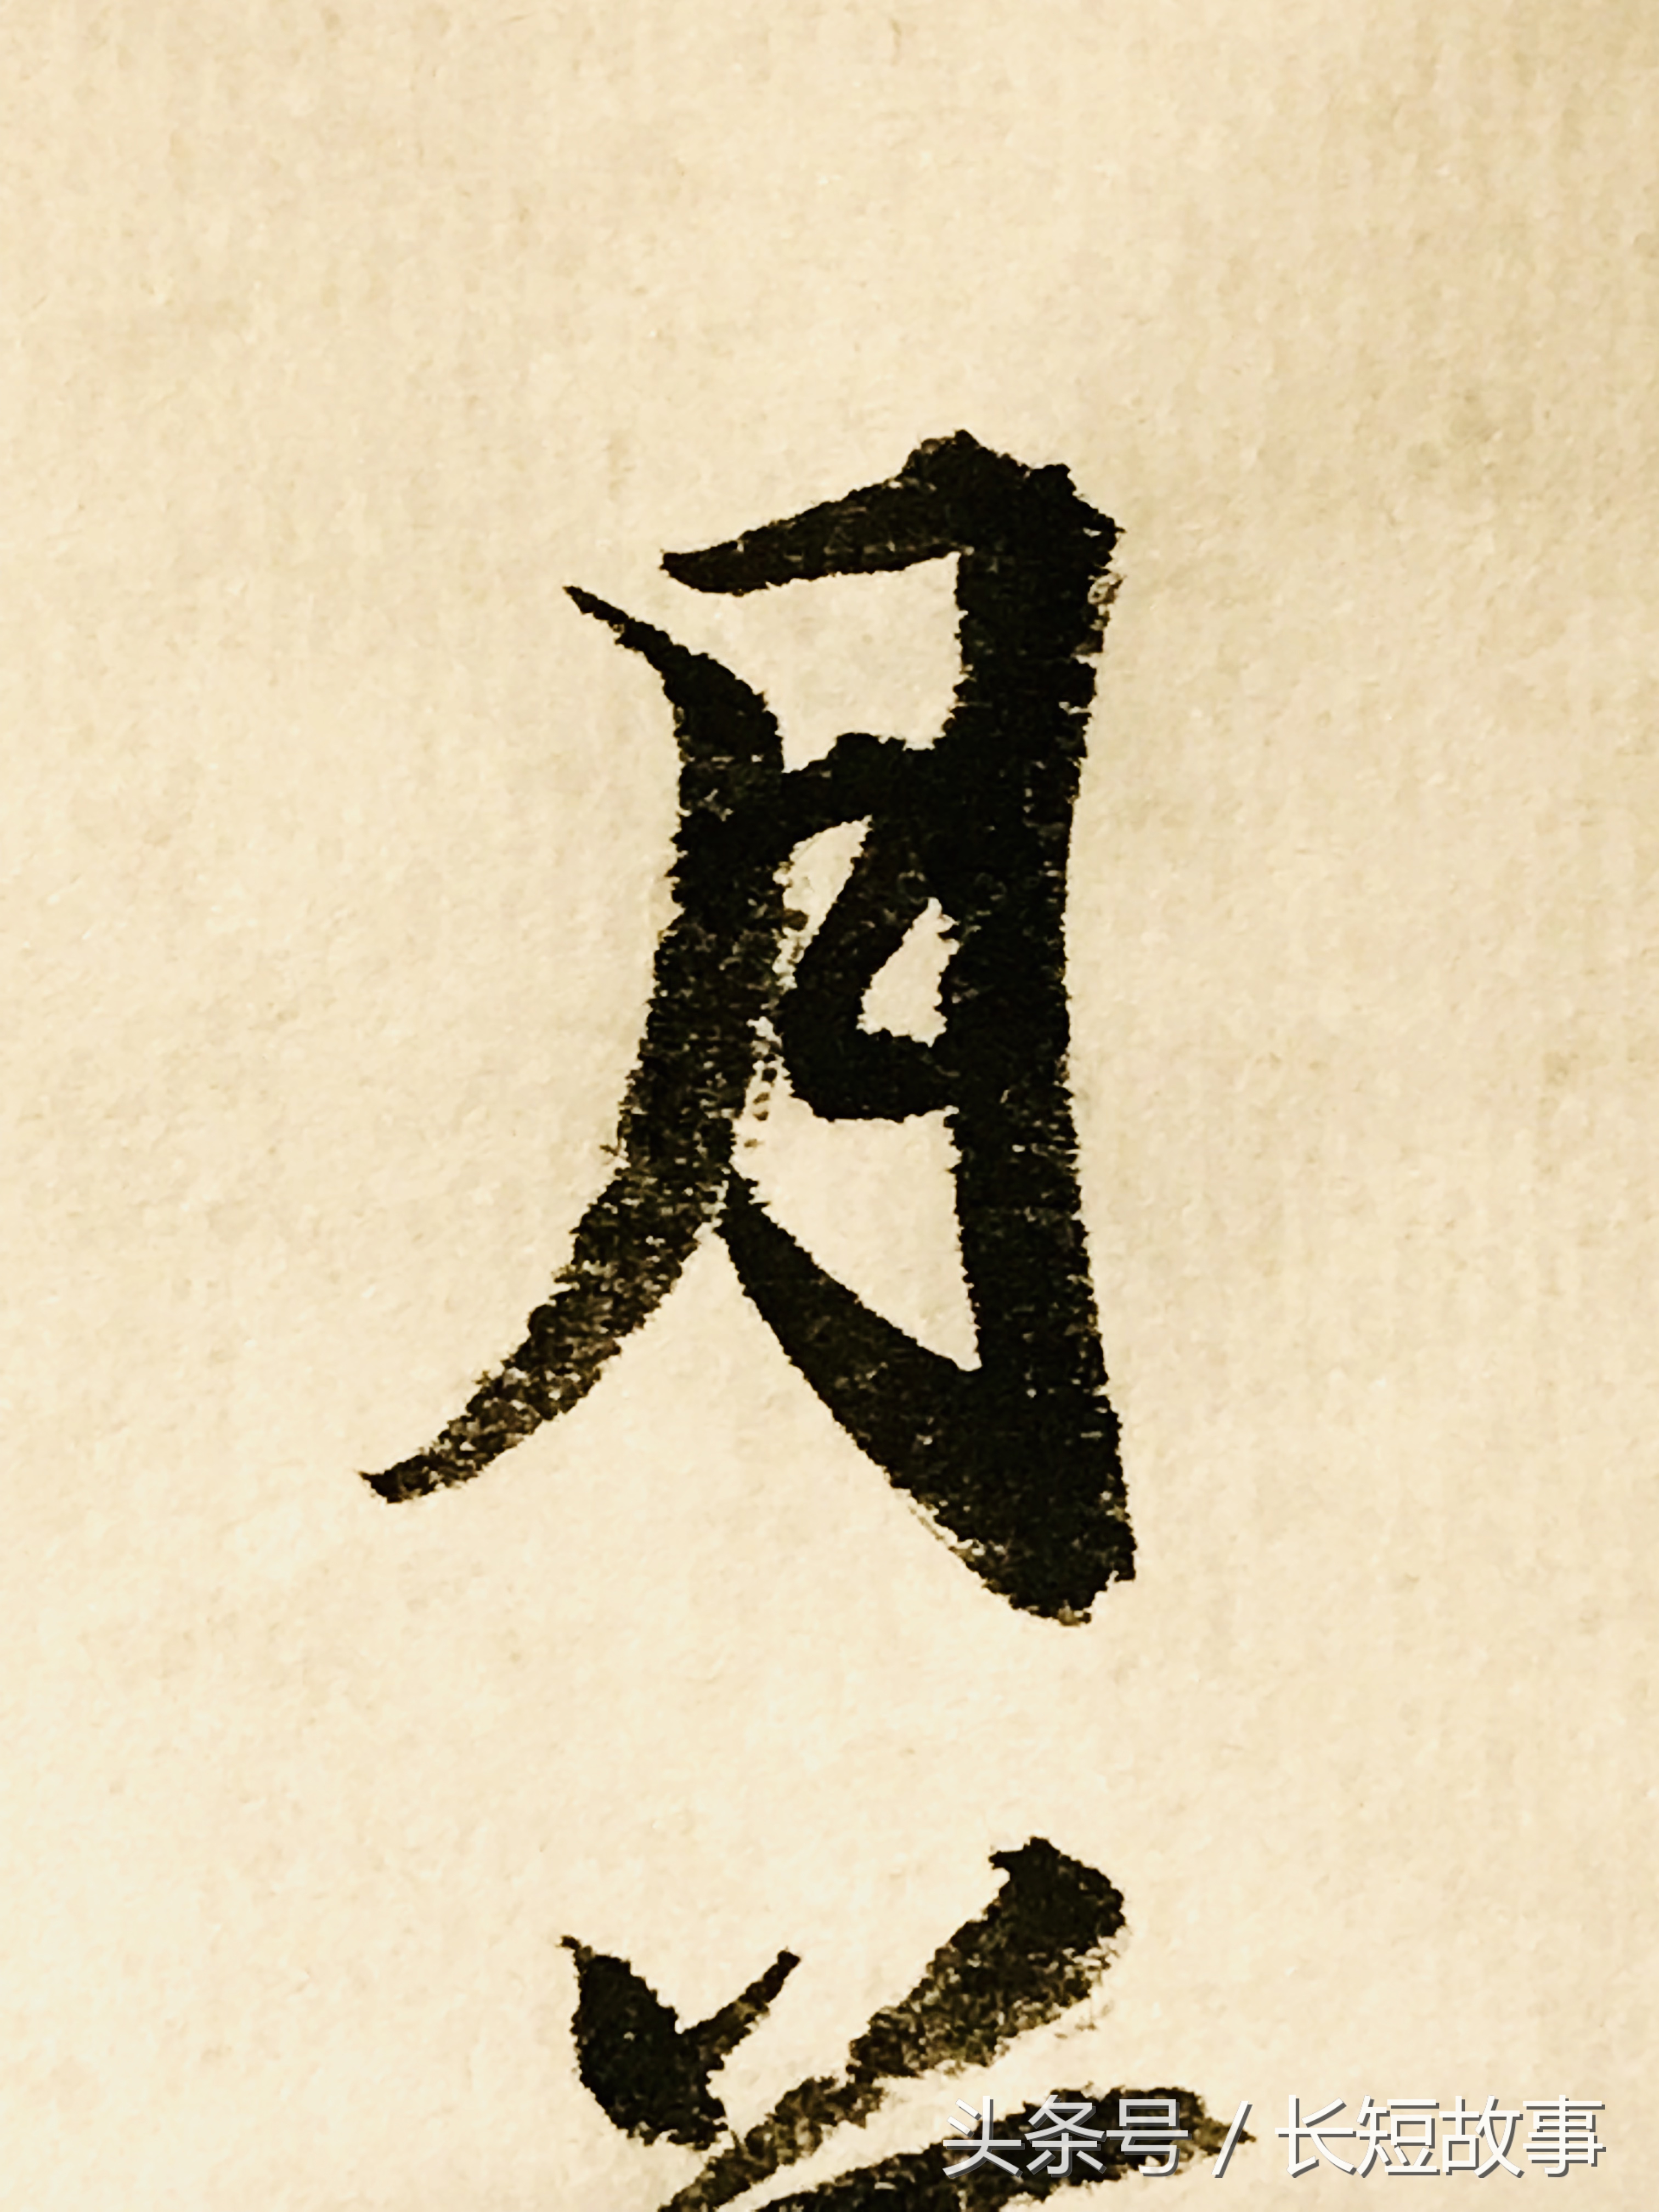 月
头条号 / 长短故事